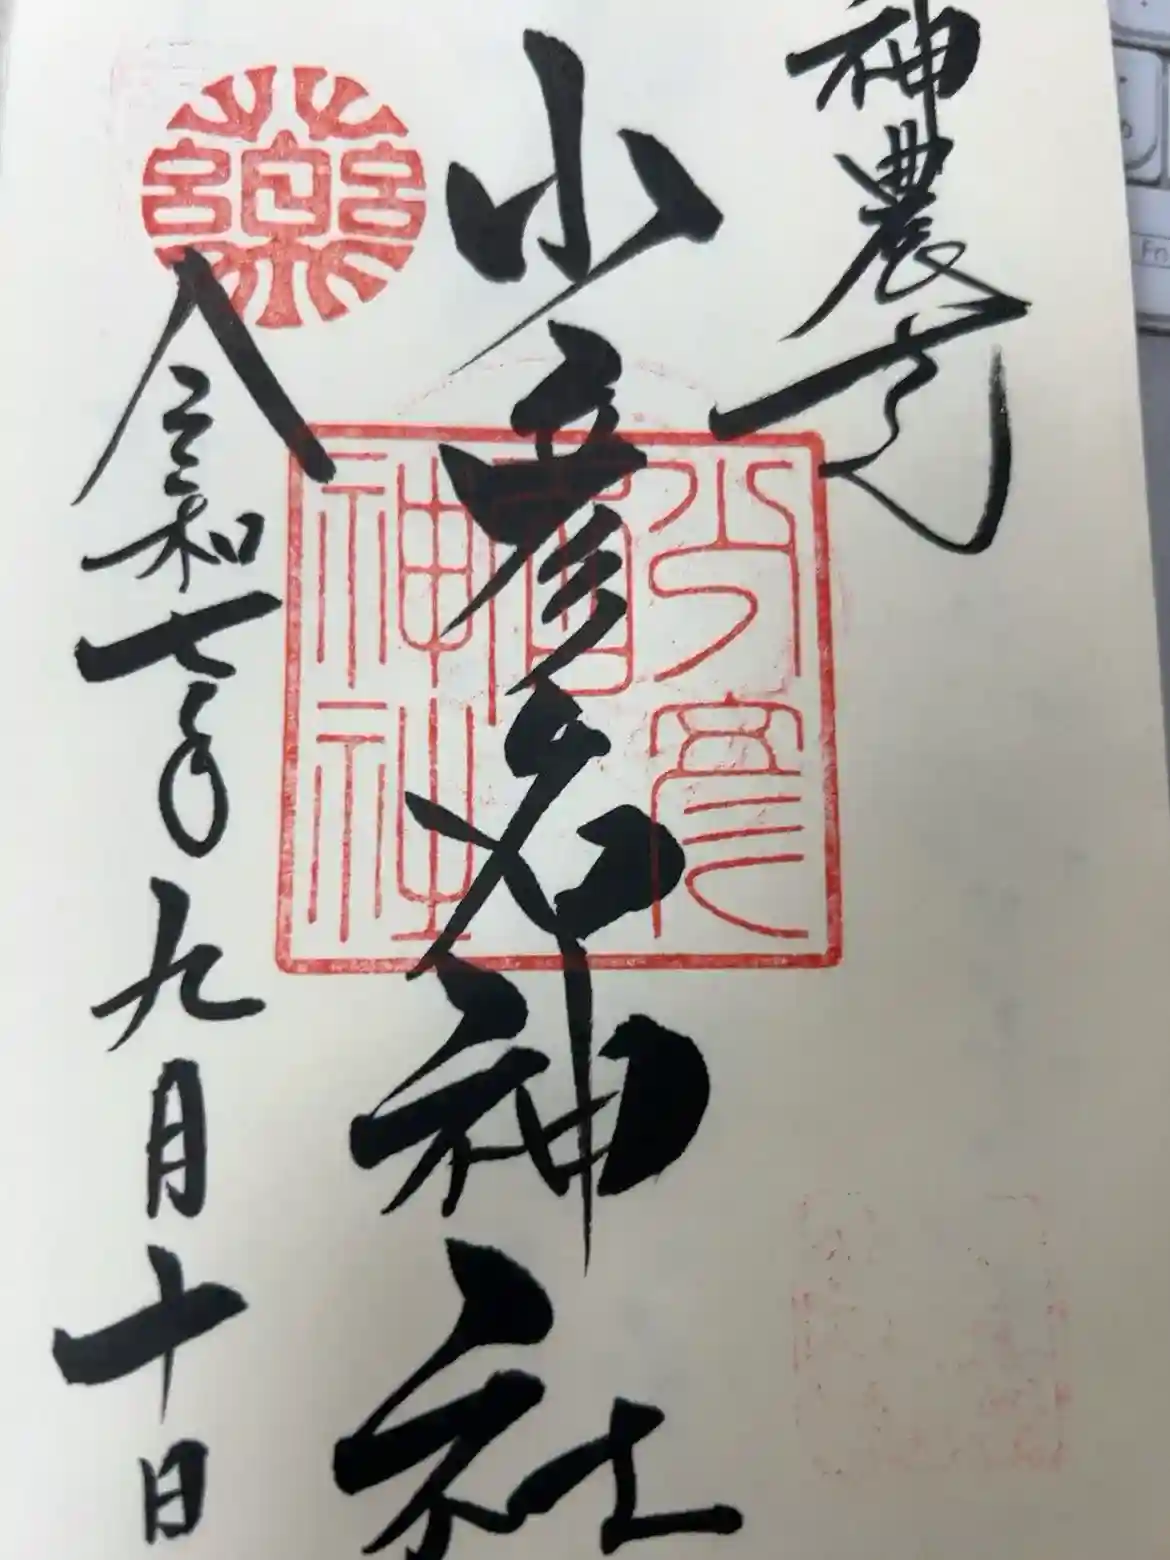 神農さん
少彦名神社
令和七年九月十日
藥
少彦
神社
Fn